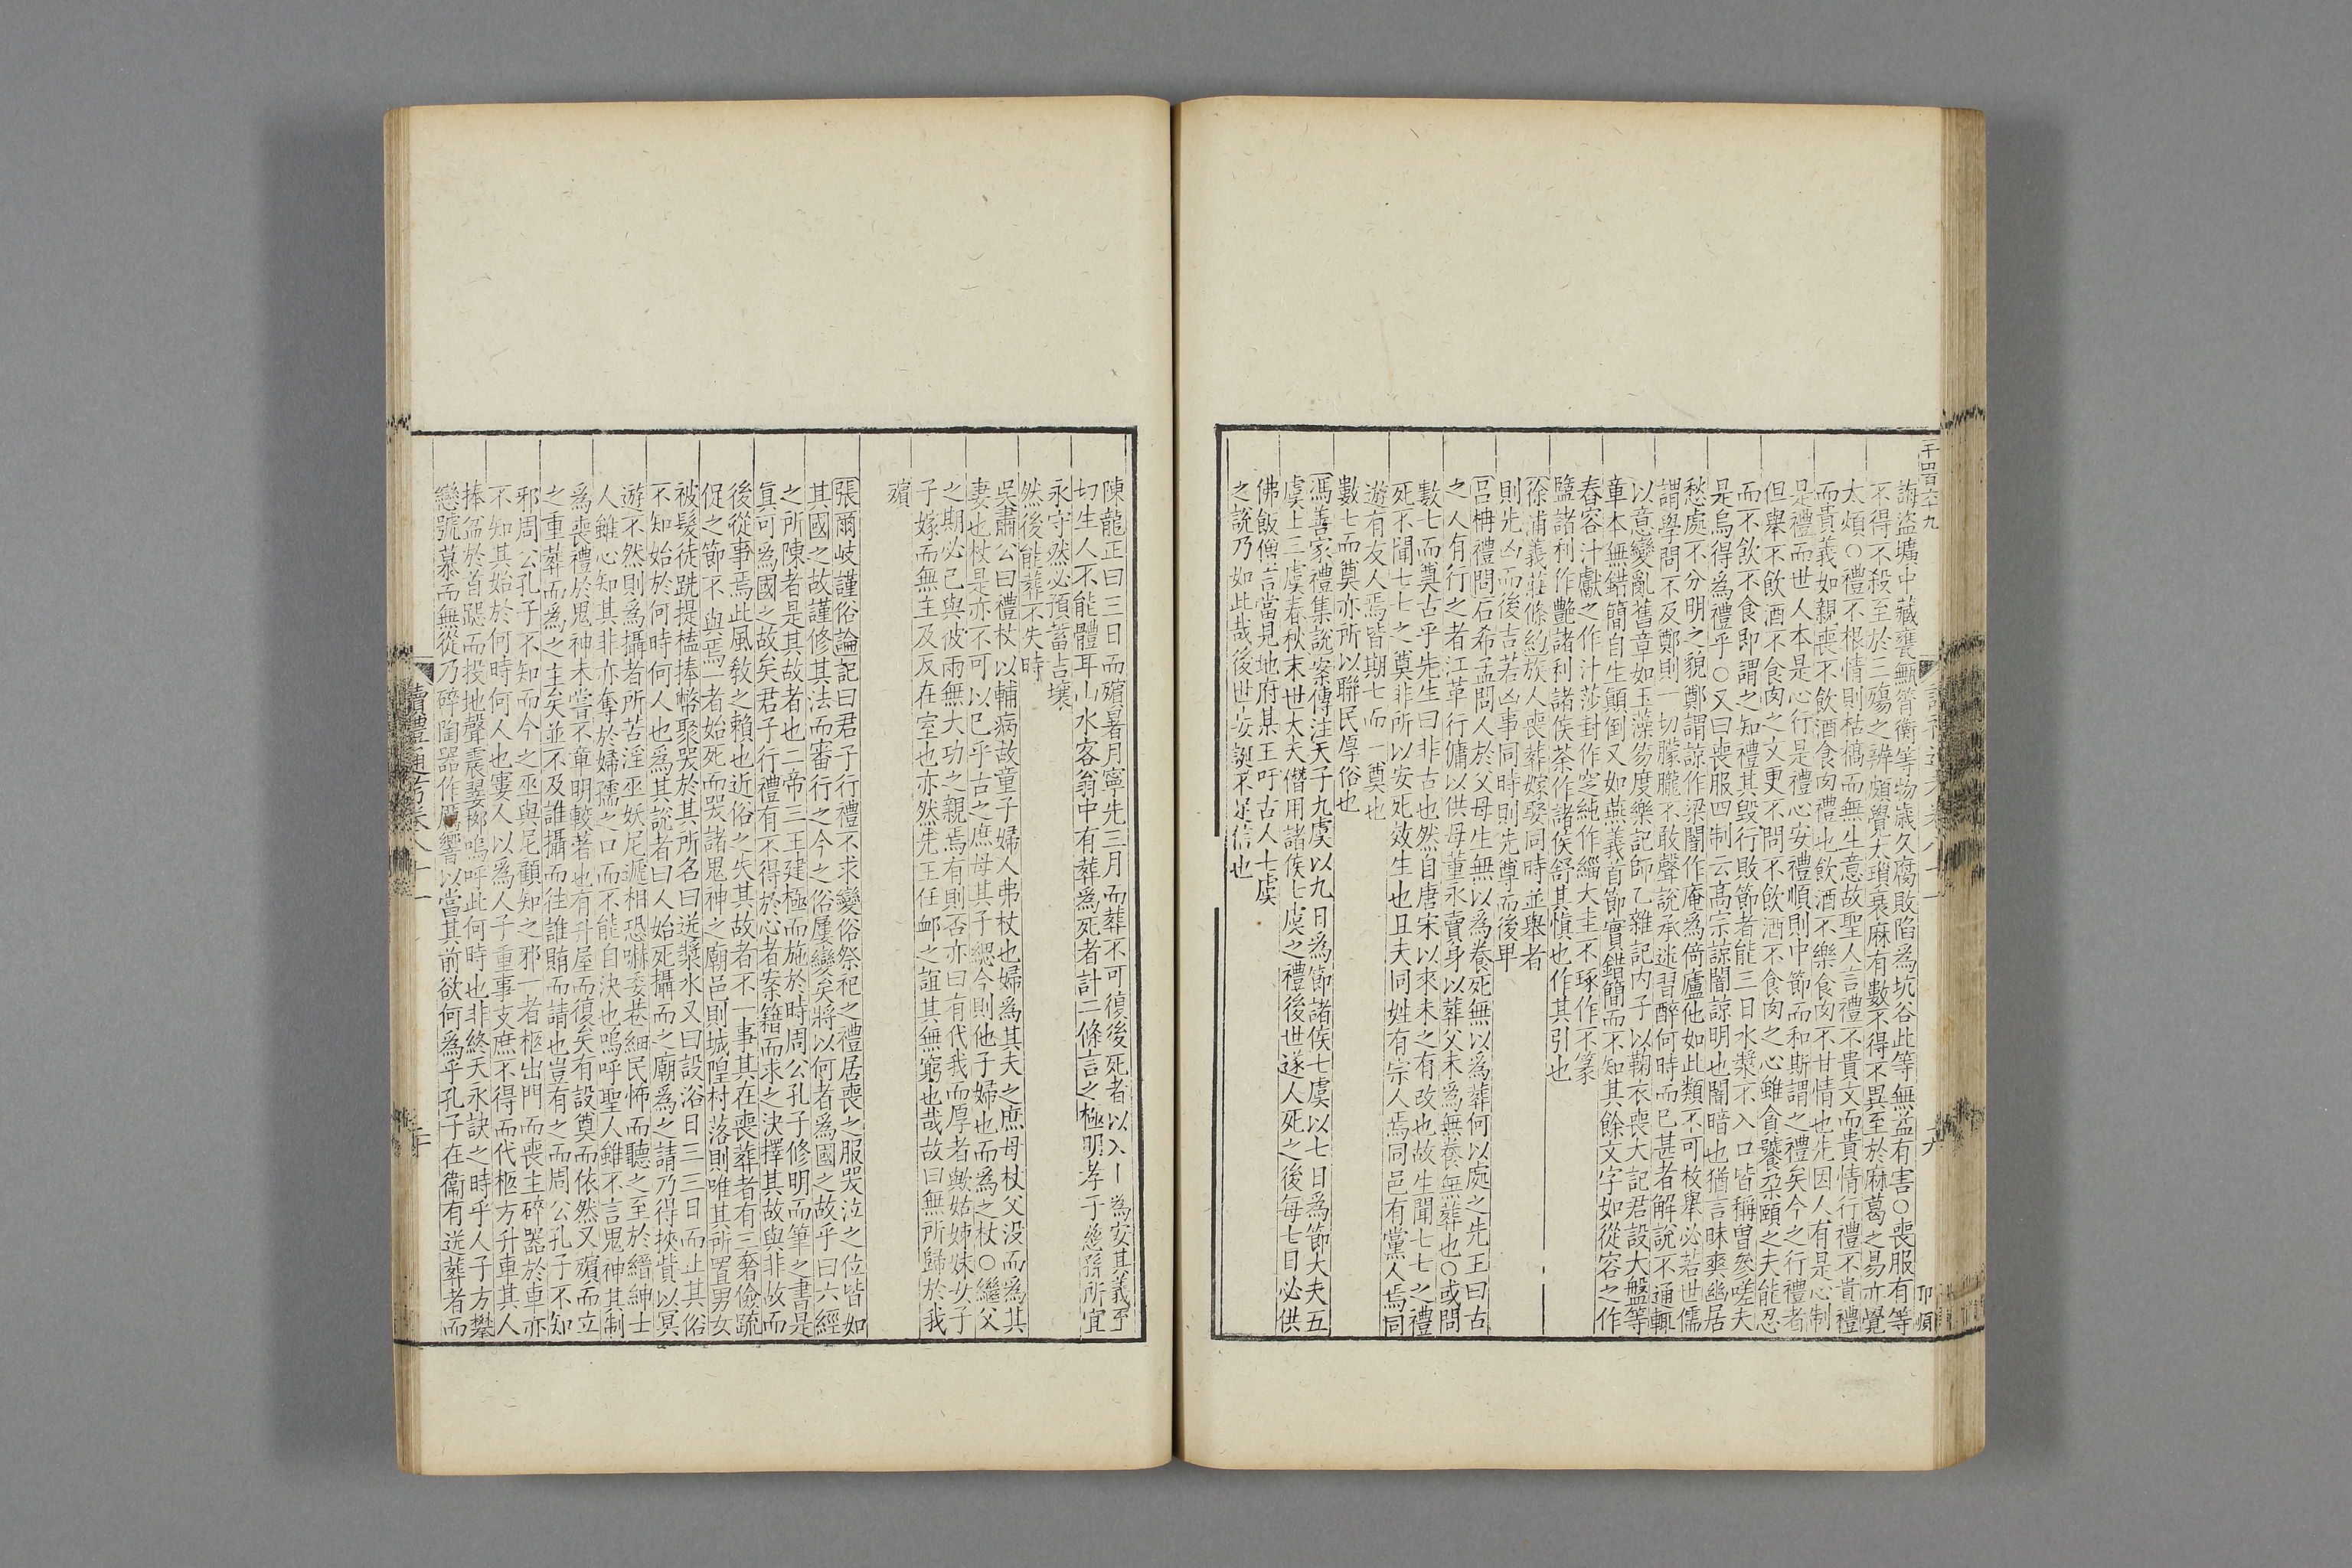 千四百六十九
誨盜壙中藏甕甒筲衡等物歲久腐敗陷爲坑谷此等無益有害○喪服有等
不得不殺至於三殤之辨頗覺太瑣衰麻有數不得不異至於麻葛之易亦覺
太煩○禮不根情則枯槁而無生意故聖人言禮不貴文而貴情行禮不貴禮
而貴義如親喪不飲酒食肉禮也飲酒不樂食肉不甘情也先因人有是心制
是禮而世人本是心行是禮心安禮順則中節而和斯謂之禮矣今之行禮者
但舉不飲酒不食肉之文更不問不飲酒不食肉之心雖貪饕朶頤之夫能忍
而不飲不食即謂之知禮其毀行敗節者能三日水漿不入口皆稱曾參嗟夫
是烏得爲禮乎○又曰喪服四制云高宗諒闇諒明也闇暗也猶言昧爽幽居
愁處不分明之貌鄭謂諒作梁闇作庵爲倚廬他如此類不可枚舉必若世儒
謂學問不及鄭則一切朦朧不敢聲說承迷習醉何時而已甚者解說不通輒
以意變亂舊章如玉藻易度樂記師乙雜記內子以鞠衣喪大記君設大盤等
章本無錯簡自生顛倒又如燕義首節實錯簡而不知其餘文字如從容之作
舂容汁獻之作汁莎封作窆純作緇大圭不琢作不篆
鹽諸利作艷諸利諸侯荼作諸侯舒其愼也作其引也
徐浦義莊條約族人喪葬嫁娶同時並舉者
則先凶而後吉若凶事同時則先尊而後卑
呂柟禮問石希孟問人於父母生無以爲養死無以爲葬何以處之先王曰古
之人有行之者江革行傭以供母董永賣身以葬父未爲無養無葬也○或問
數七而奠古乎先生曰非古也然自唐宋以來未之有改也故生聞七七之禮
死不聞七七之奠非所以安死效生也且夫同姓有宗人焉同邑有黨人焉同
遊有友人焉皆期七而一奠也
數七而奠亦所以聯民厚俗也
馮善家禮集說案傳注天子九虞以九日爲節諸侯七虞以七日爲節大夫五
虞士三虞春秋末世大夫僭用諸侯七虞之禮後世遂人死之後每七日必供
佛飯僧言當見地府某王吁古人七虞
之說乃如此哉後世妄誕不足信也
陳龍正曰三日而殯暑月寧先三月而葬不可復後死者以入土爲安其義至
切生人不能體耳山水客翁中有葬爲死者計二條言之極明孝子慈孫所宜
永守然必預蓄占壤
然後能葬不失時
吳肅公曰禮杖以輔病故童子婦人弗杖也婦爲其夫之庶母杖父沒而爲其
妻也杖是亦不可以已乎古之庶母其子緦今則他子婦也而爲之杖○繼父
之期必已與彼兩無大功之親焉有則否亦曰有代我而厚者歟姑姊妹女子
子嫁而無主及反在室也亦然先王任卹之誼其無窮也哉故曰無所歸於我
殯
張爾岐謹俗論記曰君子行禮不求變俗祭祀之禮居喪之服哭泣之位皆如
其國之故謹修其法而審行之今之俗屢變矣將以何者爲國之故乎曰六經
之所陳者是其故者也二帝三王建極而施於時周公孔子修明而筆之書是
眞可爲國之故矣君子行禮有不得於心者案籍而求之決擇其故與非故而
後從事焉此風敎之賴也近俗之失其故者不一事其在喪葬者有三奢儉疏
促之節不與焉一者始死而哭諸鬼神之廟邑則城隍村落則唯其所置男女
被髮徒跣提榼捧幣聚哭於其所名曰送漿水又曰設浴日三三日而止其俗
不知始於何時何人也爲其說者曰人始死攝而之廟爲之請乃得挾貲以冥
遊不然則爲攝者所苦淫巫妖尼遞相恐嚇委巷細民怖而聽之至於縉紳士
人雖心知其非亦奪於婦孺之口而不能自決也嗚呼聖人雖不言鬼神其制
爲喪禮於鬼神未嘗不章明較著也有升屋而復矣有設奠而依然又殯而立
之重葬而爲之主矣並不及誰攝而往誰賄而請也豈有之而周公孔子不知
邪周公孔子不知而今之巫與尼顧知之邪一者柩出門而喪主碎器於車亦
不知其始於何時何人也寠人以爲人子重事支庶不得而代柩方升車其人
捧盆於首跽而投地聲震翣桺嗚呼此何時也非終天永訣之時乎人子方攀
戀號慕而無從乃碎陶器作厲響以當其前欲何爲乎孔子在衞有送葬者而
讀禮通考卷八十一